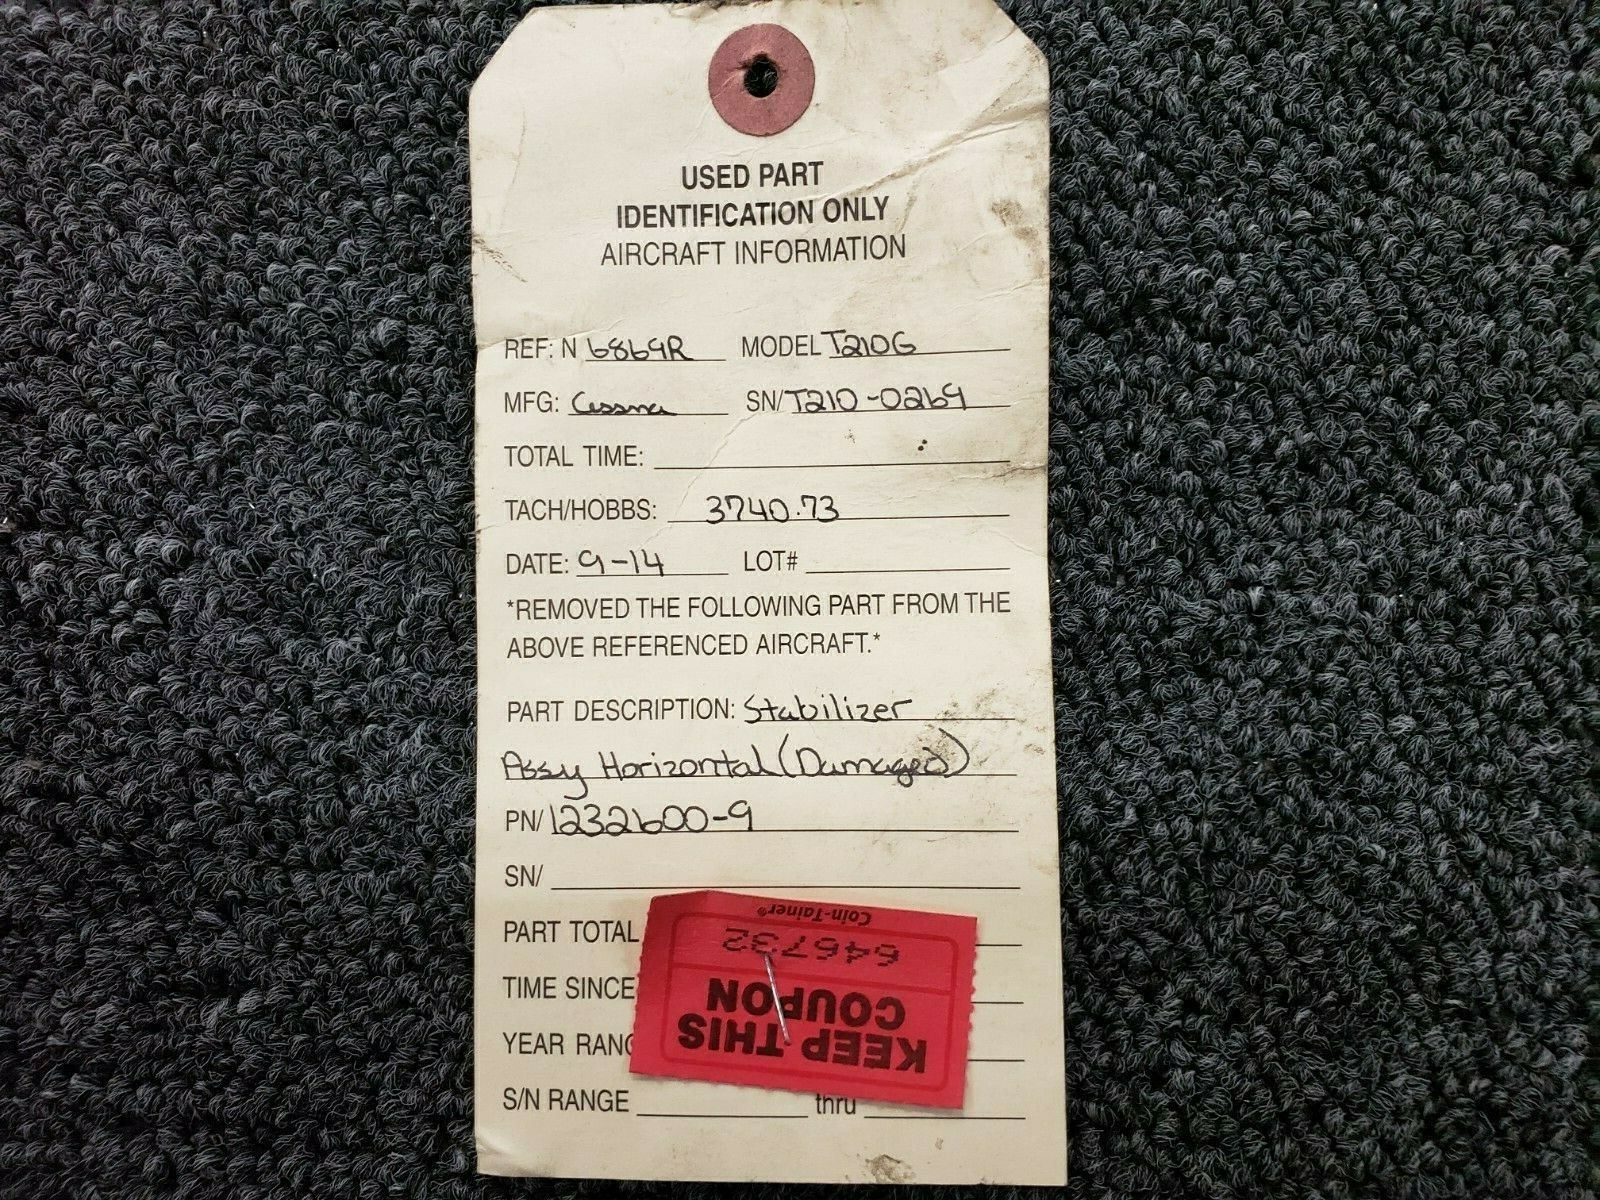 USED PART
IDENTIFICATION ONLY
AIRCRAFT INFORMATION
REF: N 6869R MODEL T210G
MFG: Cessna SN/ T210-0269
TOTAL TIME:
TACH/HOBBS: 3740.73
DATE: 9-14 LOT#
*REMOVED THE FOLLOWING PART FROM THE
ABOVE REFERENCED AIRCRAFT.*
PART DESCRIPTION: Stabilizer
Assy Horizontal (Damaged)
PN/ 1232600-9
SN/
PART TOTAL
TIME SINCE
YEAR
S/N RANGE thru
KEEP THIS
COUPON
646732
Coin-Tainer®